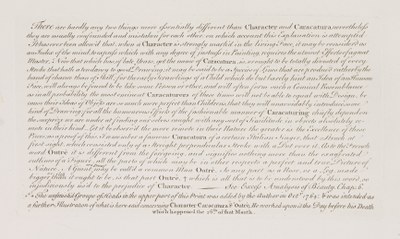 There are hardly any two things more essentially different than Character and Caracatura, nevertheless
they are usually confounded and mistaken for each other: on which account this Explanation is attempted.
It has ever been allow'd that, when a Character is strongly mark'd in the living Face, it may be consider'd as
an Index of the mind, to express which with any degree of justness in Painting, requires the utmost Efforts of a great
Master. Now that which has, of late Years, got the name of Caracatura, is, or ought to be totally divested of every
Stroke that hath a tendency to good Drawing: it may be said to be a Species of Lines that are produc'd rather by the
hand of chance than of Skill; for the early Scrawlings of a Child which do but barely hint an Idea of an Human
Face, will always be found to be like some Person or other, and will often form such a Comical Resemblance
as in all probability the most eminent Caracaturers of these times will not be able to equal with Design, be-
cause their Ideas of Objects are so much more perfect than Childrens, that they will unavoidably introduce some
kind of Drawing: for all the humourous Effects of the fashionable manner of Caracaturing chiefly depend on
the surprize we are under at finding our selves caught with any sort of Similitude in objects absolutely re-
mote in their kind. Let it be observ'd the more remote in their Nature the greater is the Excellence of these
Pieces; as a proof of this, I remember a famous Caracatura of a certain Italian Singer, that Struck at
first sight, which consisted only of a Streight perpendicular Stroke with a Dot over it. As to the French
word Outrè it is different from the foregoing, and signifies nothing more than the exagerated
outlines of a Figure, all the parts of which may be in other respects a perfect and true Picture of
Nature. A Giant may be call'd a common Man Outrè. So any part as a Nose, or a Leg, made
bigger than it ought to be, is that part Outrè, which is all that is to be understood by this word, so
injudiciously us'd to the prejudice of Character. See Excess Analysis of Beauty. Chap. 6.
The unfinish'd groupe of Heads in the upper part of this Print was added by the Author in Octr. 1764: & was intended as
a further Illustration of what is here said concerning Character Caracatura & Outrè. He worked upon it the Day before his Death
which happened the 26th. of that Month.